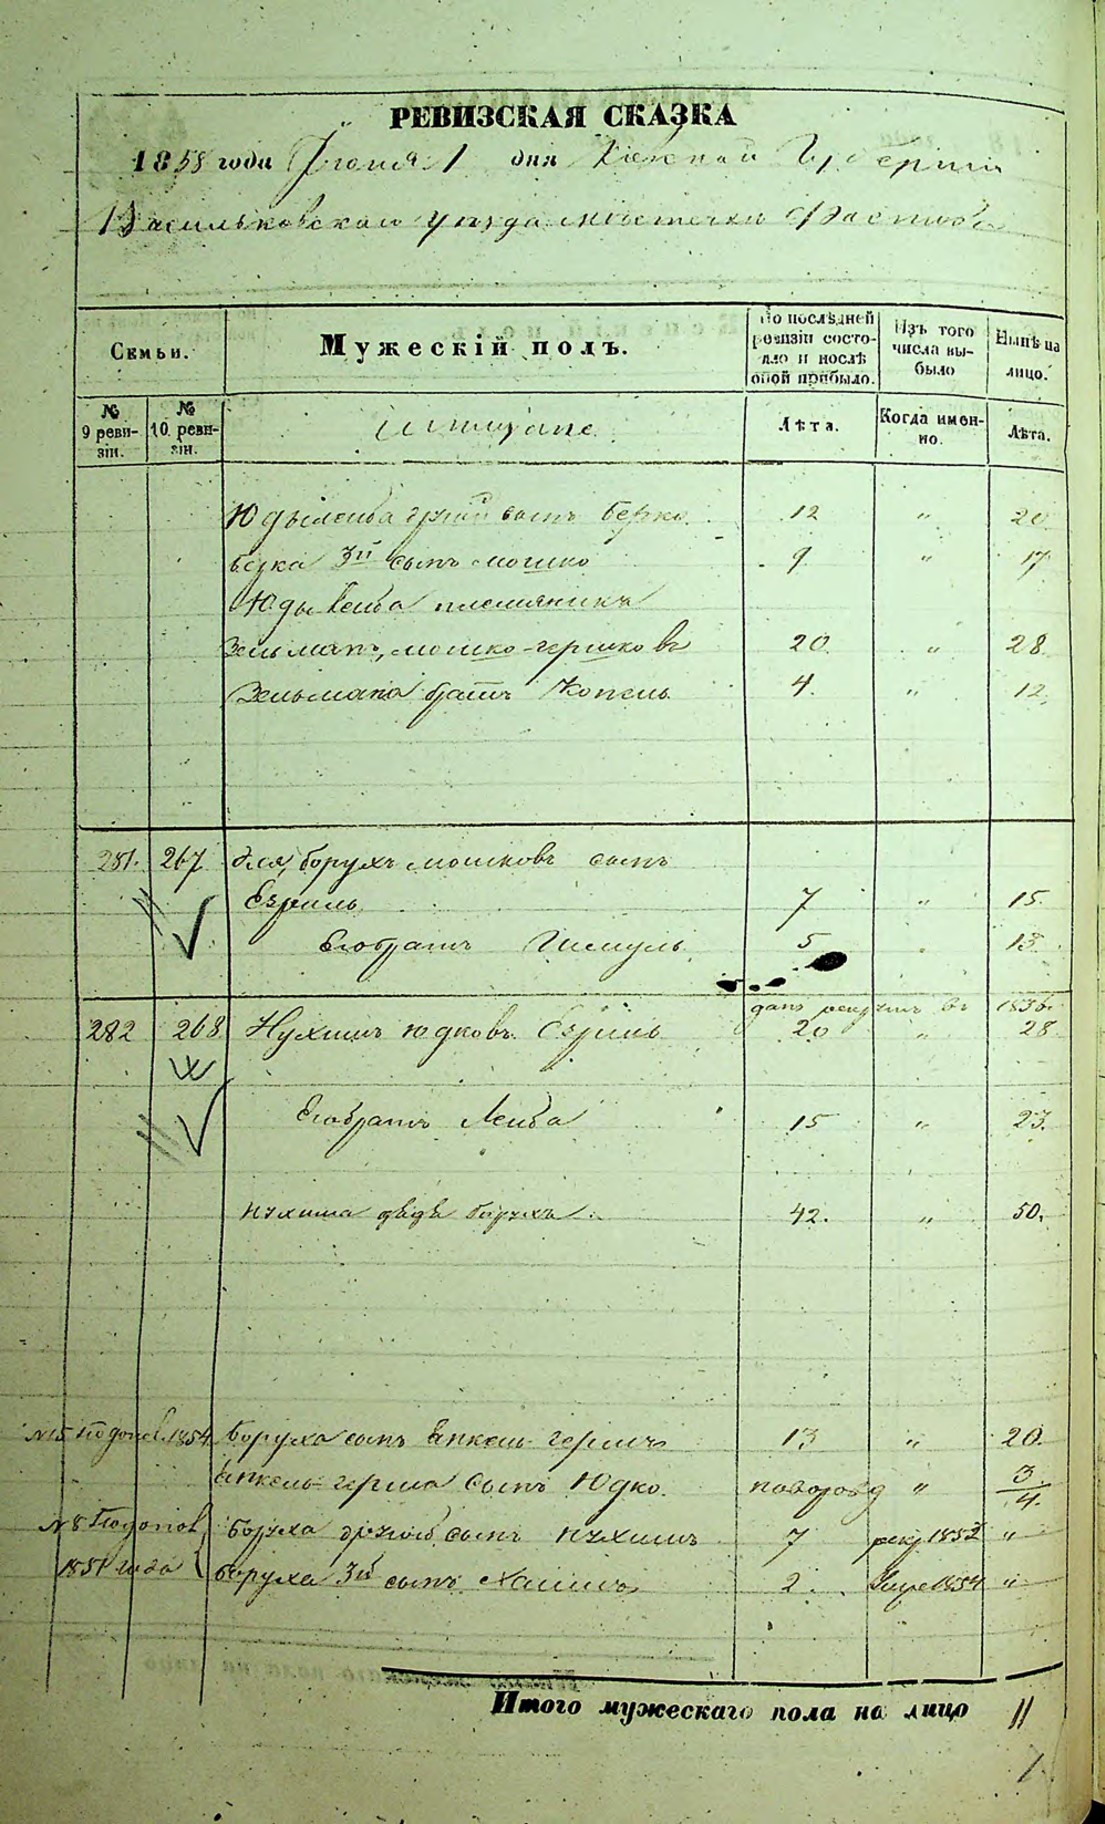 РЕВИЗСКАЯ СКАЗКА
1858 года Іюня 1 дня Кіевской Губерніи
Васильковскаго уѣзда мѣстечка Фастова
Семьи.
Мужескій полъ.
По послѣдней ревизіи состояло и послѣ оной прибыло.
Изъ того числа выбыло
Нынѣ на лицо.
№ 9 ревизіи.
№ 10 ревизіи.
Мѣщане
Лѣта.
Когда именно.
Лѣта.
Юдылейба другій сынъ Берко 12 " 20
Берка 3й сынъ Мошко 9 " 17
Юды Лейба племянникъ
Зельманъ, Мошко-Гершковъ 20 " 28
Зельмана братъ Копель 4. " 12.
281. 267 Эля, Борухъ Мошковъ сынъ
Езриль 7 " 15.
Его братъ Шмуль 5 " 13
данъ рекрутъ въ 1856.
282 268 Нухимъ Юдковъ Езриль 20 " 28
Его братъ Лейба 15 " 23.
Нухима дядя Борухъ 42. " 50.
№ 15 по допол. 1854 Боруха сынъ Янкель Гершъ 13 " 20.
Янкель-Герша сынъ Юдко. новорожд " 3/4.
№ 8 по допол. Боруха другій сынъ Нухимъ 7 рекр. 1852 "
1851 года Боруха 3й сынъ Хаимъ 2. Умре 1854 "
Итого мужескаго пола на лицо 11